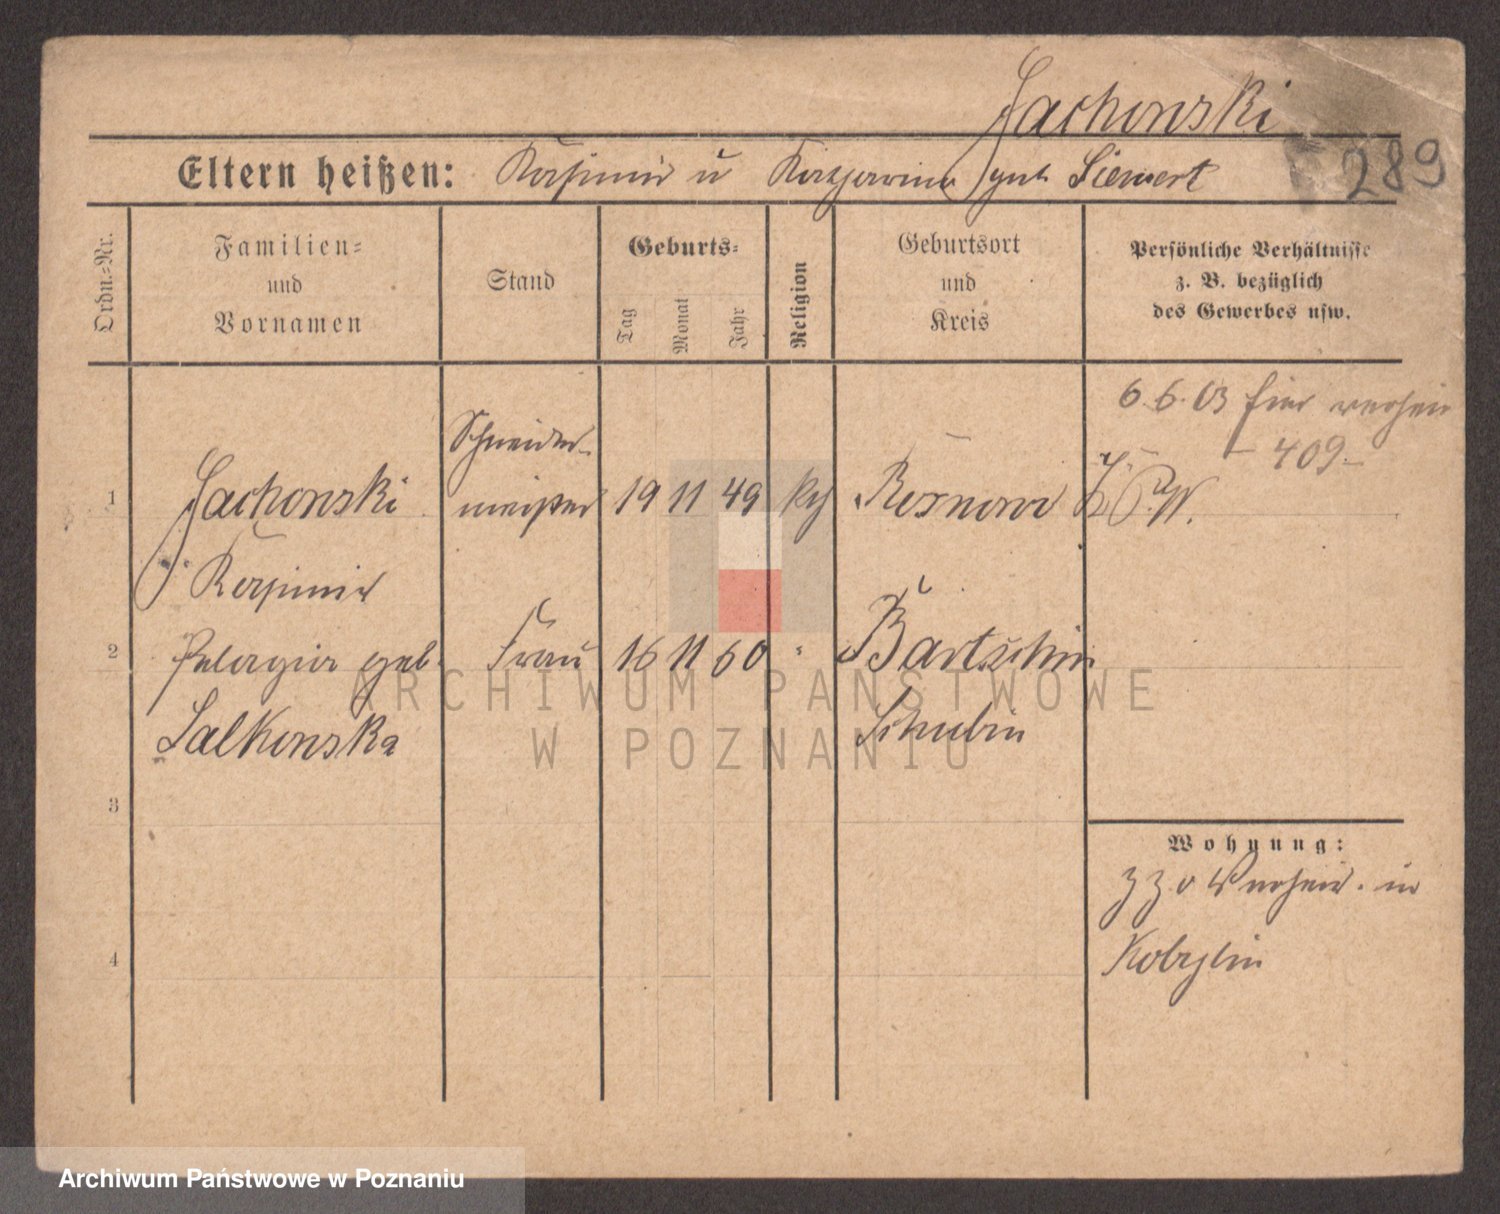 Jachowski
289
Eltern heißen: Kasimir u Katharina geb. Siewert
Ordn.-Nr.
Familien-
und
Vornamen
Stand
Geburts-
Tag
Monat
Jahr
Religion
Geburtsort
und
Kreis
Persönliche Verhältnisse
z. B. bezüglich
des Gewerbes usw.
6.6.03 hier
- 409 -
Schneider-
1 Jachowski meister 19 11 49 kth Rosnowo
Kasimir
2 Pelagia geb. Frau 16 11 60 " Bartschin
Salkowska Schubin
3
Wohnung:
zzo in
4 Kobylin
ARCHIWUM PAŃSTWOWE
W POZNANIU
Archiwum Państwowe w Poznaniu